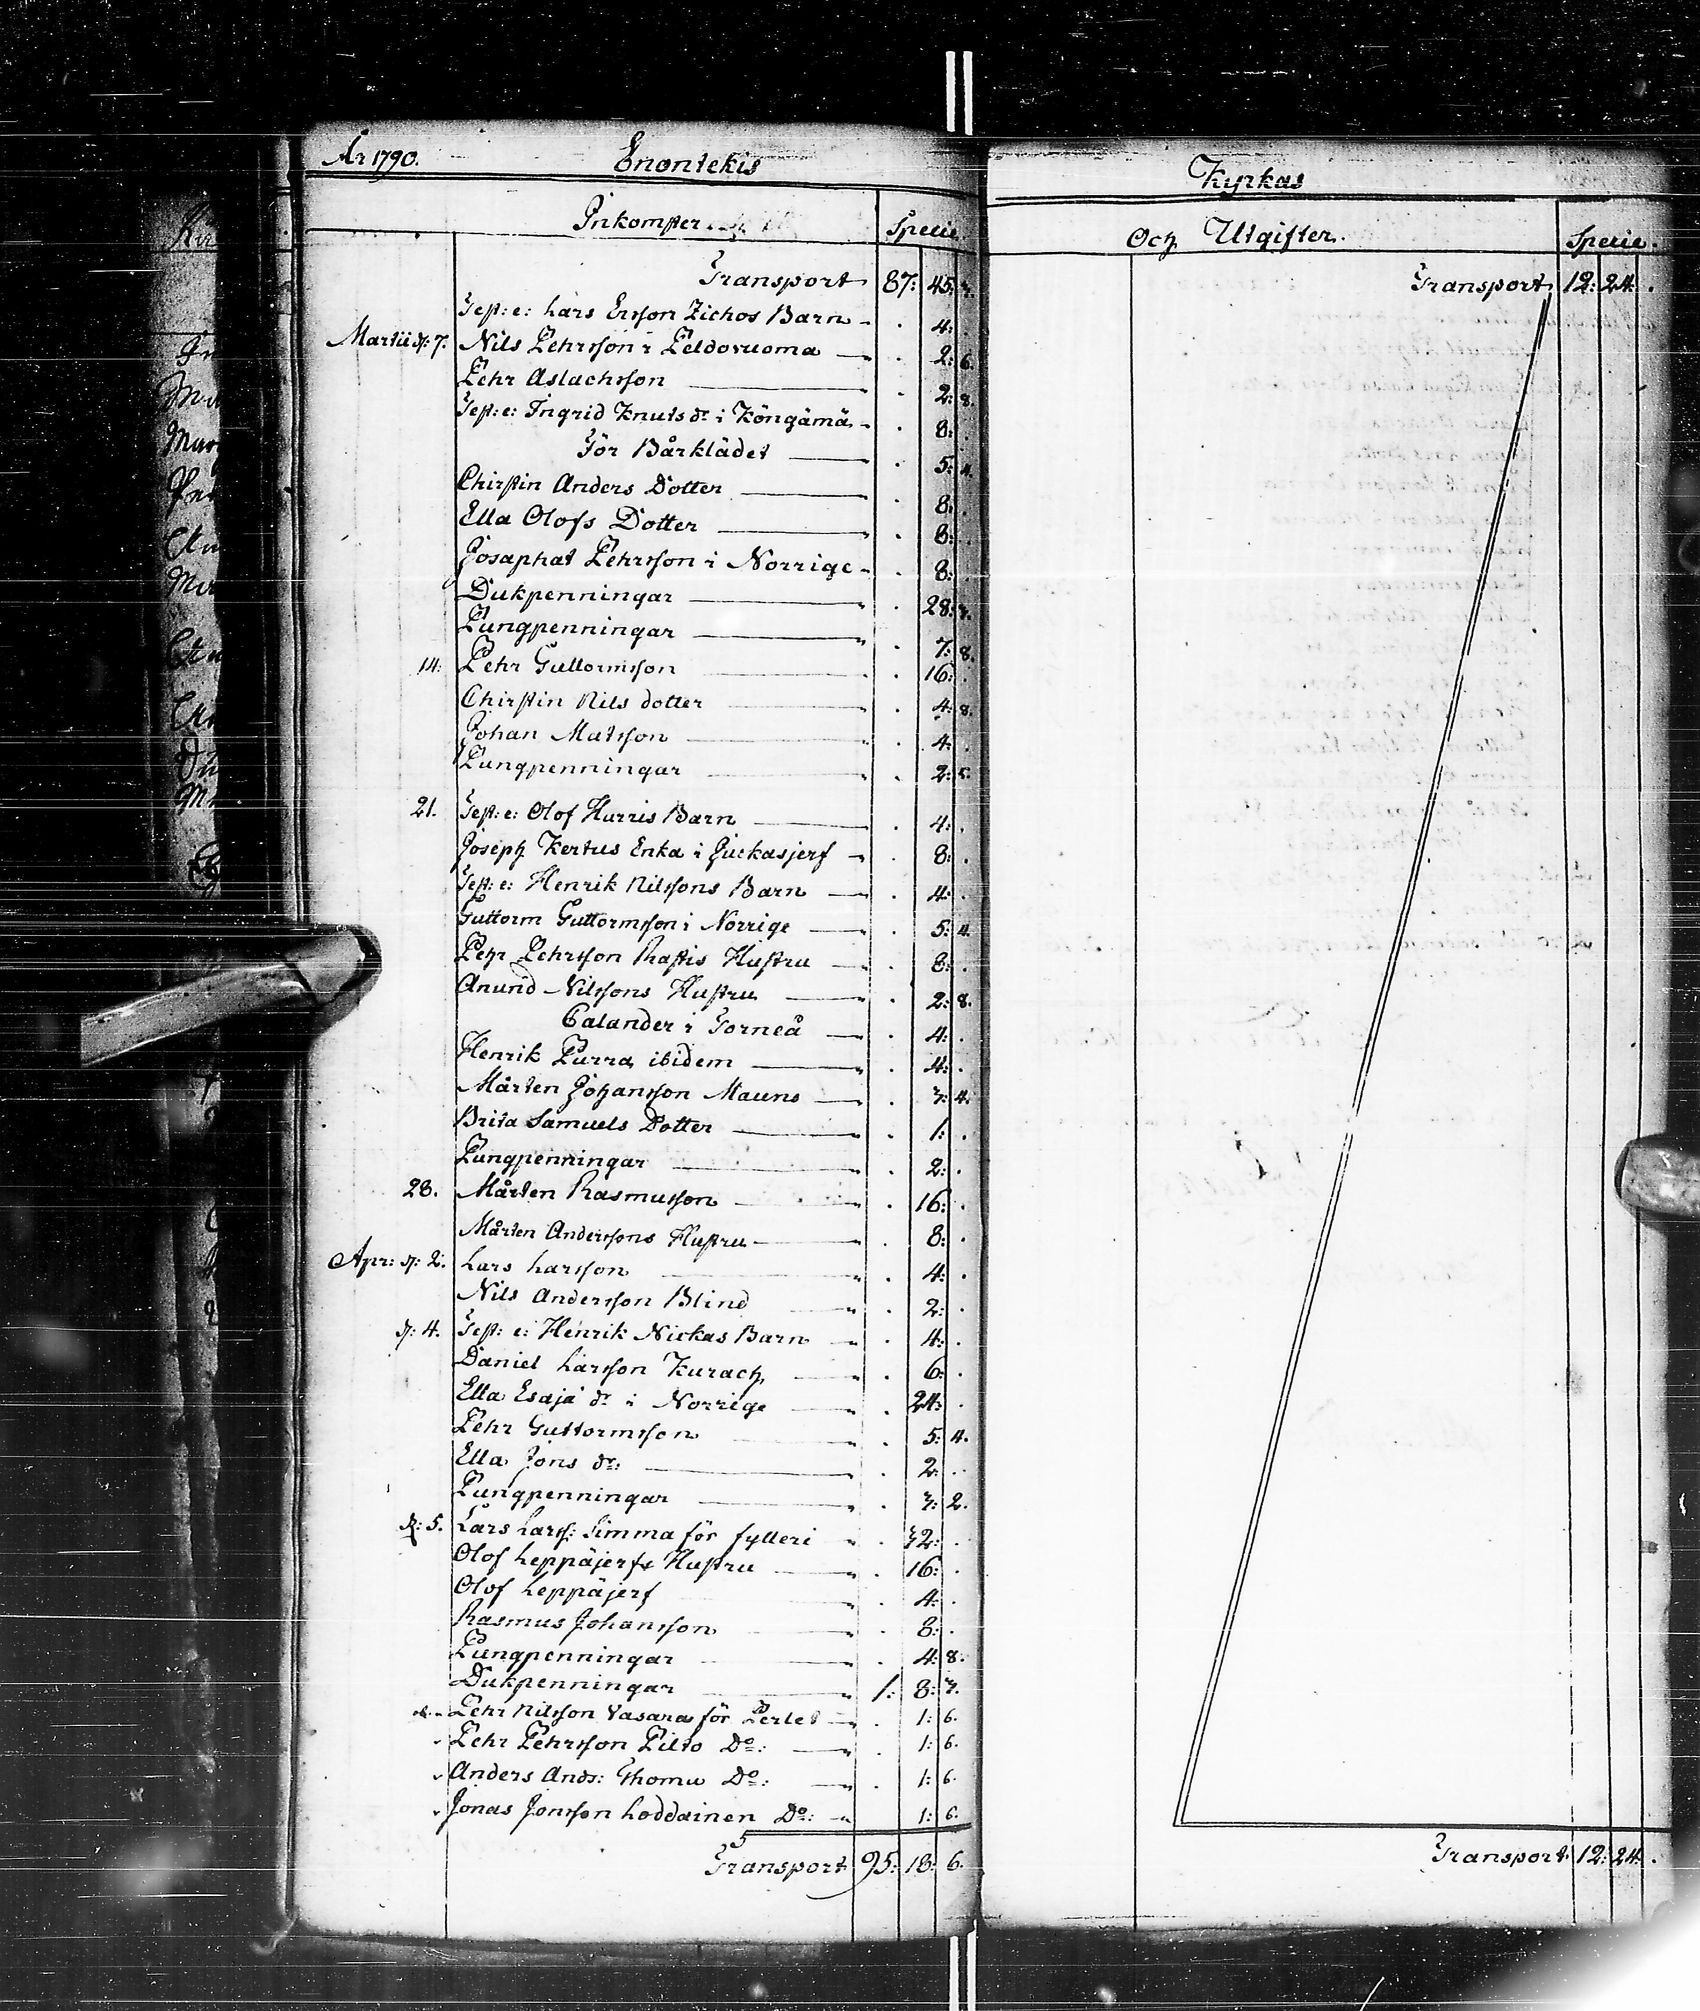 År 1790. Enontekis
Inkomster Specie
Transport 87: 45: 3.
Test: e: Lars Ersson Zichos Barn . 4: .
Martii d: 7. Nils Pehrsson i Peldovuoma . 2: 6.
Pehr Aslachsson . 2: 8.
Test: e: Ingrid Knuts dr i Köngämä . 8: .
För Bårklädet . 5: 4.
Chirstin Anders Dotter . 8: .
Ella Olofs Dotter . 8: .
Josaphat Pehrsson i Norrige . 8: .
Dukpenningar . 28: 3.
Pungpenningar . 7: 8.
14: Pehr Guttormsson . 16: .
Chirstin Nils dotter . 4: 8.
Johan Matsson . 4: .
Pungpenningar . 2: 5.
21. Test: e: Olof Hurris Barn . 4: .
Joseph Kertus Enka i Juckasjerf . 8: .
Test: e: Henrik Nilssons Barn . 4: .
Guttorm Guttormsson i Norrige . 5: 4.
Pehr Pehrsson Rastis Hustru . 8: .
Anund Nilssons Hustru . 2: 8.
Calander i Torneå . 4: .
Henrik Purra ibidem . 4: .
Mårten Johansson Mauns . 3: 4.
Brita Samuels Dotter . 1: .
Pungpenningar . 2: .
28. Mårten Rasmusson . 16: .
Mårten Anderssons Hustru . 8: .
Apr: d: 2. Lars Larsson . 4: .
Nils Andersson Blind . 2: .
d: 4. Test: e: Henrik Nickas Barn . 4: .
Daniel Larsson Kurach . 6: .
Ella Esaja dr i Norrige . 24: .
Pehr Guttormsson . 5: 4.
Ella Jons dr: . 2: .
Pungpenningar . 3: 2.
d: 5. Lars Larss: Simma för fylleri . 32: .
Olof Leppäjerfs Hustru . 16: .
Olof Leppäjerf . 4: .
Rasmus Johansson . 8: .
Pungpenningar . 4: 8.
Dukpenningar 1: 8: 3.
Pehr Nilsson Vasara för Perlet . 1: 6.
Pehr Pehrsson Pilto Do: . 1: 6.
Anders Ands: Thomu Do: . 1: 6.
Jonas Jonsson Loddainen Do: 1: 6.
Transport 95: 18: 6.
Kyrkas
Och Utgifter. Specie.
Transport 12: 24: .
Transport 12: 24: .